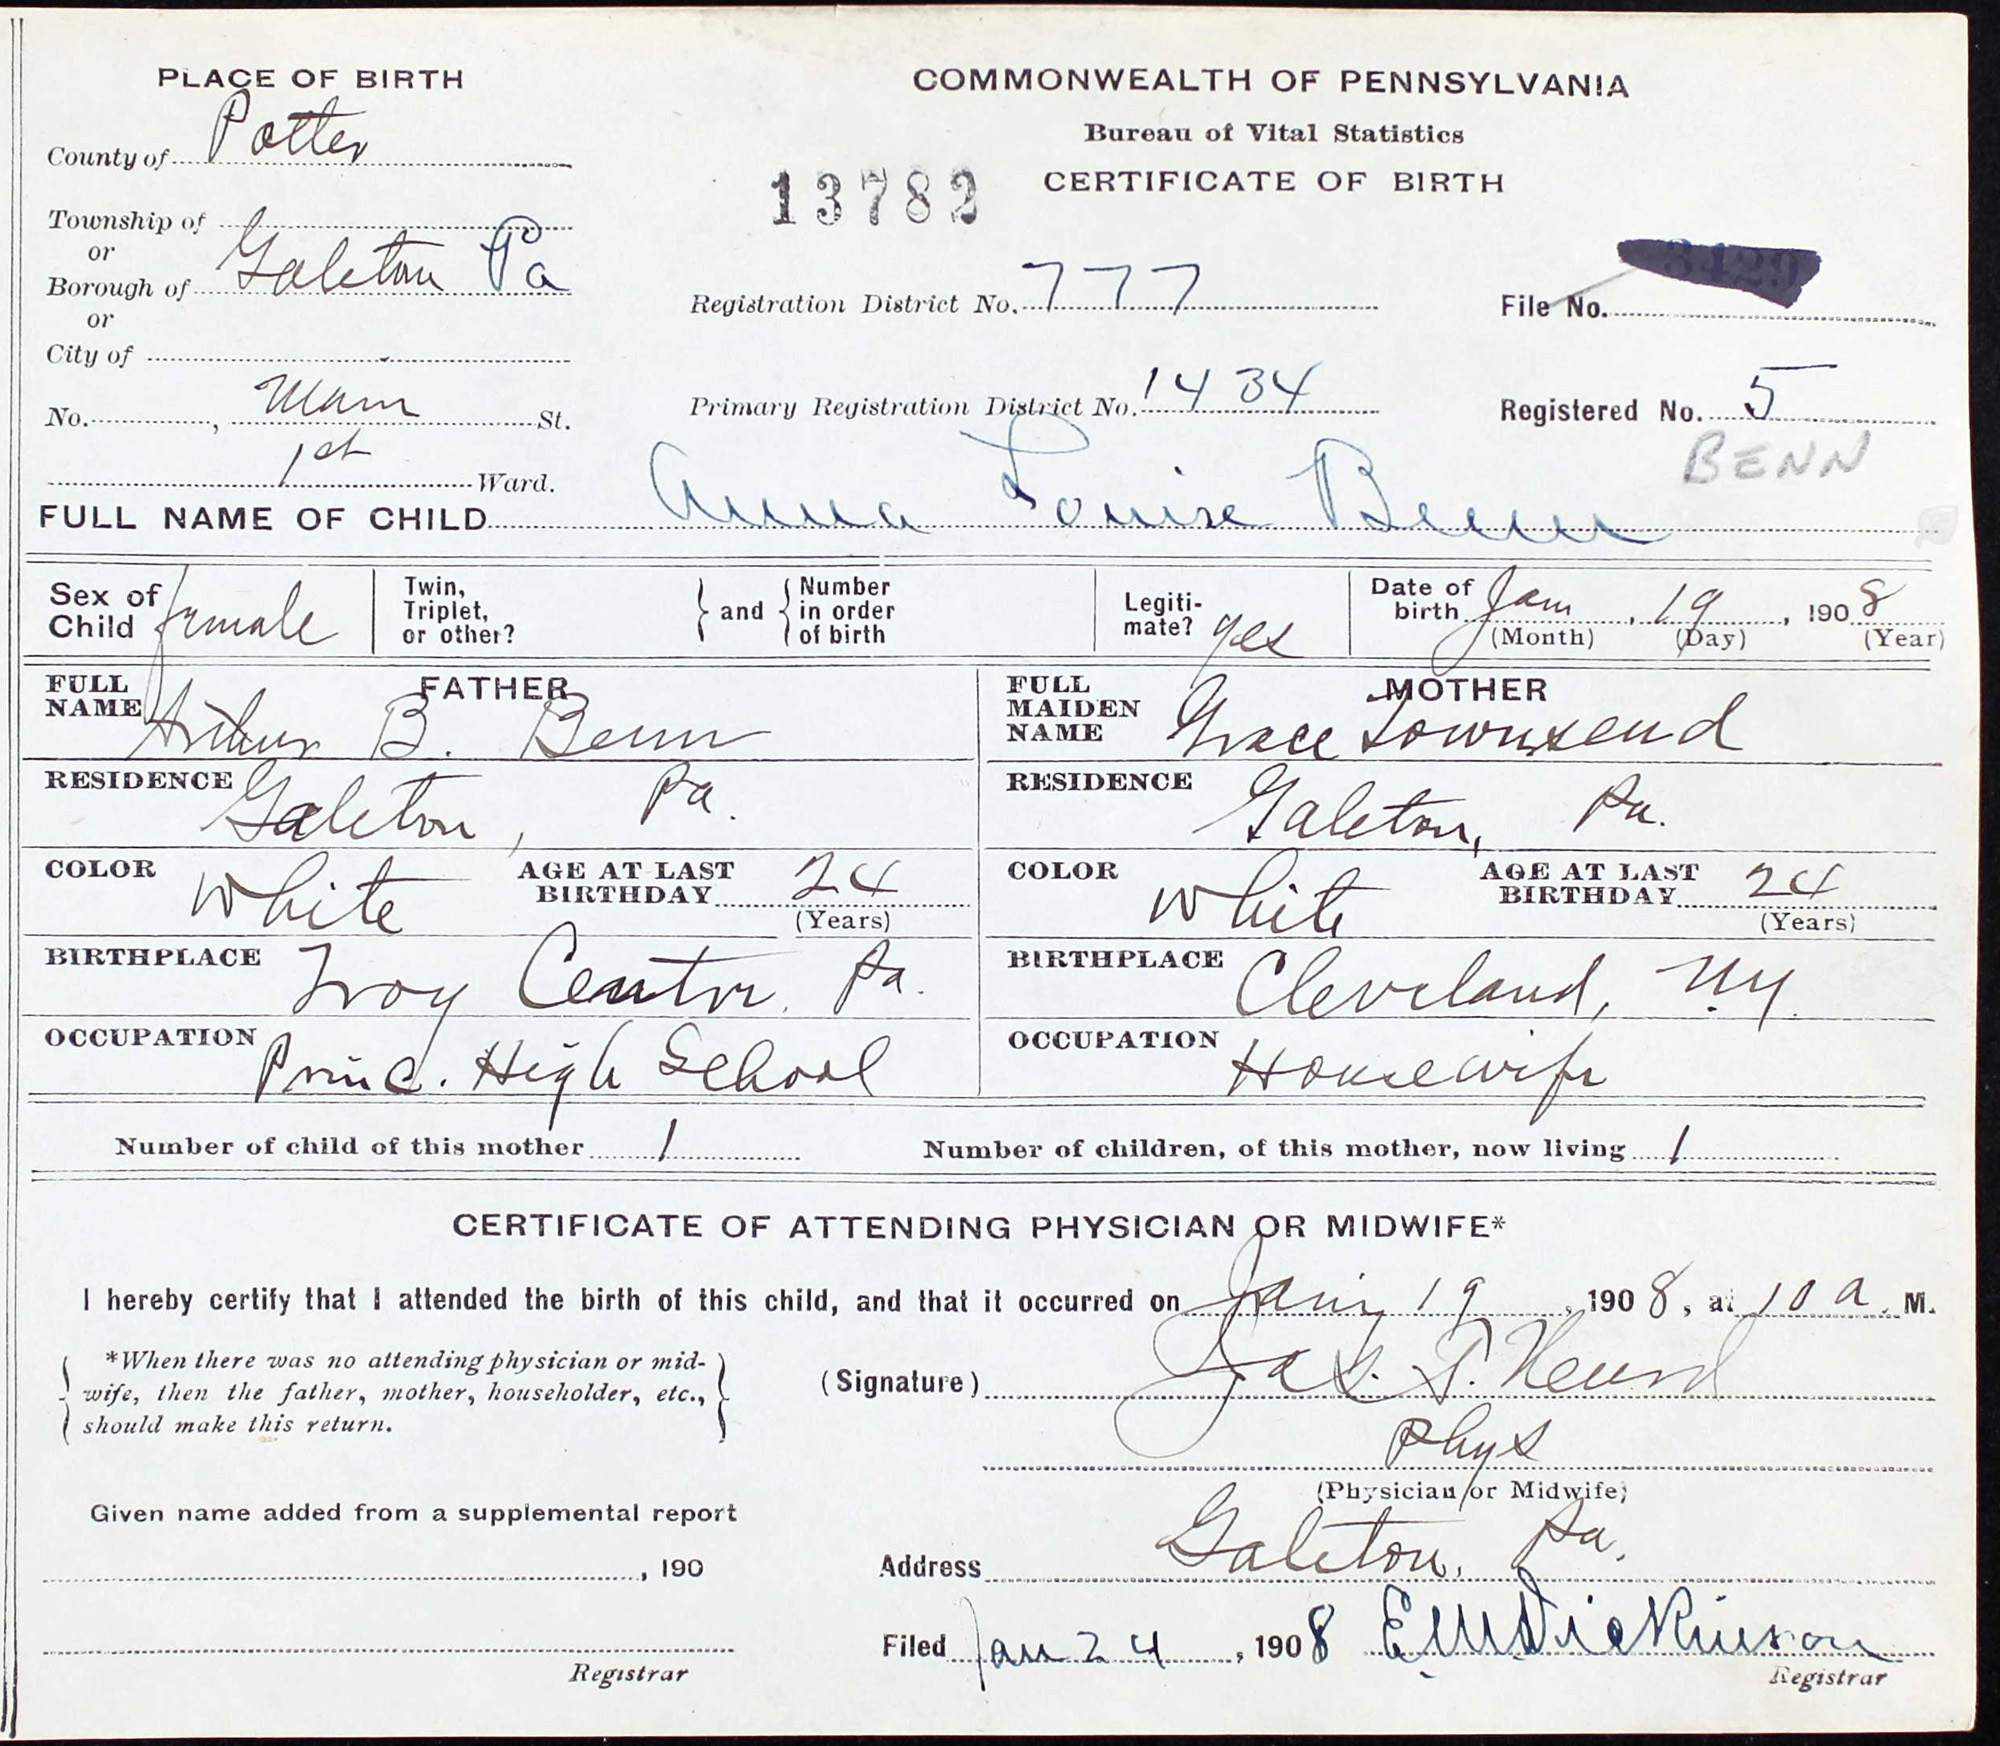 PLACE OF BIRTH
County of Potter
Township of
or
Borough of Galeton Pa
or
City of
No. , Main St.
1st Ward.
COMMONWEALTH OF PENNSYLVANIA
Bureau of Vital Statistics
CERTIFICATE OF BIRTH
13782
Registration District No. 777
File No. 3429
Primary Registration District No. 1434
Registered No. 5
BENN
FULL NAME OF CHILD Anna Louise Benn
Sex of Child female
Twin, Triplet, or other? and Number in order of birth
Legiti-mate? yes
Date of birth Jan, 19, 1908
(Month) (Day) (Year)
FATHER
FULL NAME Arthur B. Benn
RESIDENCE Galeton, Pa.
COLOR White AGE AT LAST BIRTHDAY 24
(Years)
BIRTHPLACE Troy Center, Pa.
OCCUPATION Princ. High School
MOTHER
FULL MAIDEN NAME Grace Townsend
RESIDENCE Galeton, Pa.
COLOR White AGE AT LAST BIRTHDAY 24
(Years)
BIRTHPLACE Cleveland, NY.
OCCUPATION Housewife
Number of child of this mother 1
Number of children, of this mother, now living 1
CERTIFICATE OF ATTENDING PHYSICIAN OR MIDWIFE*
I hereby certify that I attended the birth of this child, and that it occurred on Jany 19, 1908, at 10 a. M.
*When there was no attending physician or mid-
wife, then the father, mother, householder, etc.,
should make this return.
(Signature) Jas. T.
Phys
(Physician or Midwife)
Given name added from a supplemental report
, 190
Registrar
Address Galeton, Pa.
Filed Jan 24, 1908 E.M. Dickinson
Registrar